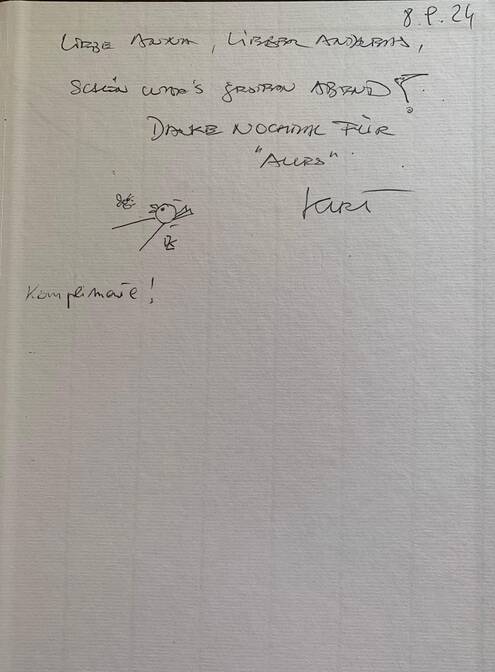 8. P. 24
LIEBE ANNA, LIEBER ANDREAS,
SCHÖN WAR'S GESTERN ABEND!
DANKE NOCHMAL FÜR
"ALLES"
KARI
Komplimente!